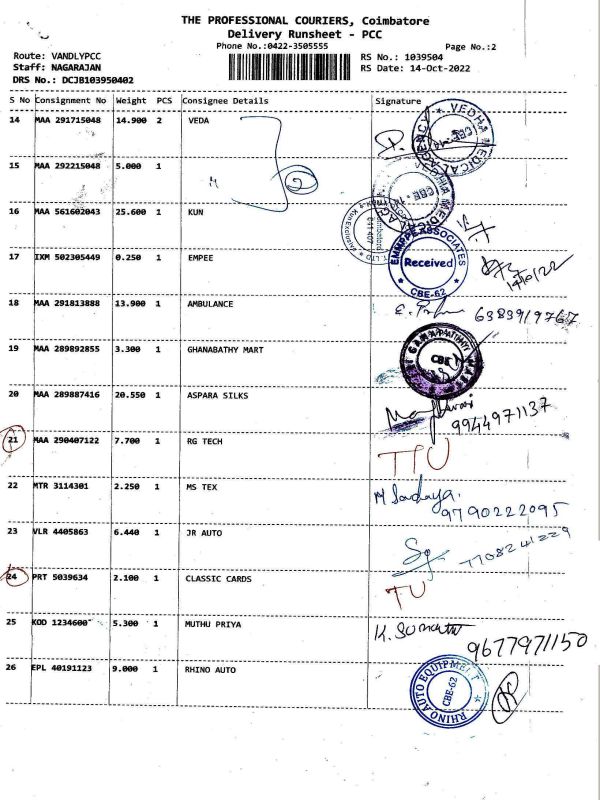 THE PROFESSIONAL COURIERS, Coimbatore
Delivery Runsheet - PCC
Phone No.:0422-3505555
Page No.:2
Route: VANDLYPCC
RS No.: 1039504
Staff: NAGARAJAN
RS Date: 14-Oct-2022
DRS No.: DCJB103950402
S No Consignment No Weight PCS Consignee Details Signature
14 MAA 291715048 14.900 2 VEDA
VEDHA MEDICAL AGENCY
CBE-14
15 MAA 292215048 5.000 1
2
16 MAA 561602043 25.600 1 KUN
17 IXM 502305449 0.250 1 EMPEE
ASSOCIATES
Received
CBE-62
14/10/22
18 MAA 291813888 13.900 1 AMBULANCE
6383919767
19 MAA 289892855 3.300 1 GHANABATHY MART
CBE
20 MAA 289887416 20.550 1 ASPARA SILKS
9944971137
21 MAA 290407122 7.700 1 RG TECH
22 MTR 3114301 2.250 1 MS TEX
9790222095
23 VLR 4405863 6.440 1 JR AUTO
7708241229
24 PRT 5039634 2.100 1 CLASSIC CARDS
TU
25 KOD 1234600 5.300 1 MUTHU PRIYA
9677971150
26 EPL 40191123 9.000 1 RHINO AUTO
RHINO AUTO EQUIPMENT
CBE-62